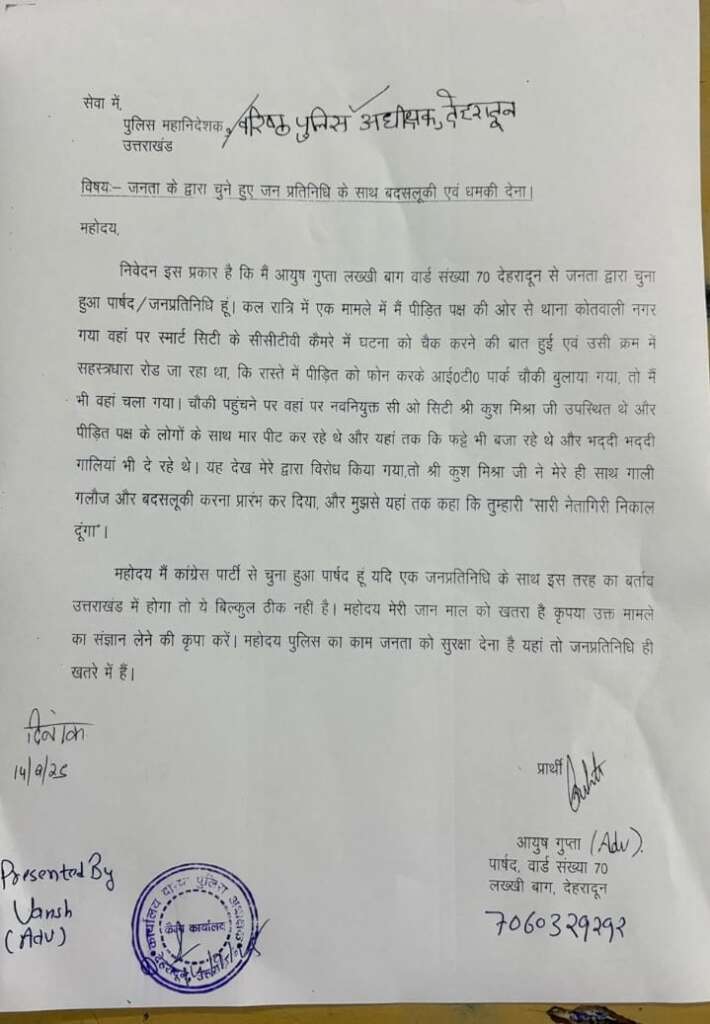 सेवा में,
पुलिस महानिदेशक, वरिष्ठ पुलिस अधीक्षक, देहरादून
उत्तराखंड
विषयः– जनता के द्वारा चुने हुए जन प्रतिनिधि के साथ बदसलूकी एवं धमकी देना।
महोदय,
निवेदन इस प्रकार है कि मैं आयुष गुप्ता लख्खी बाग वार्ड संख्या 70 देहरादून से जनता द्वारा चुना
हुआ पार्षद/जनप्रतिनिधि हूं। कल रात्रि में एक मामले में मैं पीड़ित पक्ष की ओर से थाना कोतवाली नगर
गया वहां पर स्मार्ट सिटी के सीसीटीवी कैमरे में घटना को चैक करने की बात हुई एवं उसी क्रम में
सहस्त्रधारा रोड जा रहा था, कि रास्ते में पीड़ित को फोन करके आई0टी0 पार्क चौकी बुलाया गया, तो मैं
भी वहां चला गया। चौकी पहुंचने पर वहां पर नवनियुक्त सी ओ सिटी श्री कुश मिश्रा जी उपस्थित थे और
पीड़ित पक्ष के लोगों के साथ मार पीट कर रहे थे और यहां तक कि फट्टे भी बजा रहे थे और भद्दी भद्दी
गालियां भी दे रहे थे। यह देख मेरे द्वारा विरोध किया गया,तो श्री कुश मिश्रा जी ने मेरे ही साथ गाली
गलौज और बदसलूकी करना प्रारंम कर दिया, और मुझसे यहां तक कहा कि तुम्हारी "सारी नेतागिरी निकाल
दूंगा"।
महोदय मैं कांग्रेस पार्टी से चुना हुआ पार्षद हूं यदि एक जनप्रतिनिधि के साथ इस तरह का बर्ताव
उत्तराखंड में होगा तो ये बिल्कुल ठीक नही है। महोदय मेरी जान माल को खतरा है कृपया उक्त मामले
का संज्ञान लेने की कृपा करें। महोदय पुलिस का काम जनता को सुरक्षा देना है यहां तो जनप्रतिनिधि ही
खतरे में हैं।
दिनांक
प्रार्थी
आयुष गुप्ता (Adv).
पार्षद, वार्ड संख्या 70
लख्खी बाग, देहरादून
7060329292
Presented By
Vansh
(Adv)
कार्यालय पुलिस
कैम्प कार्यालय